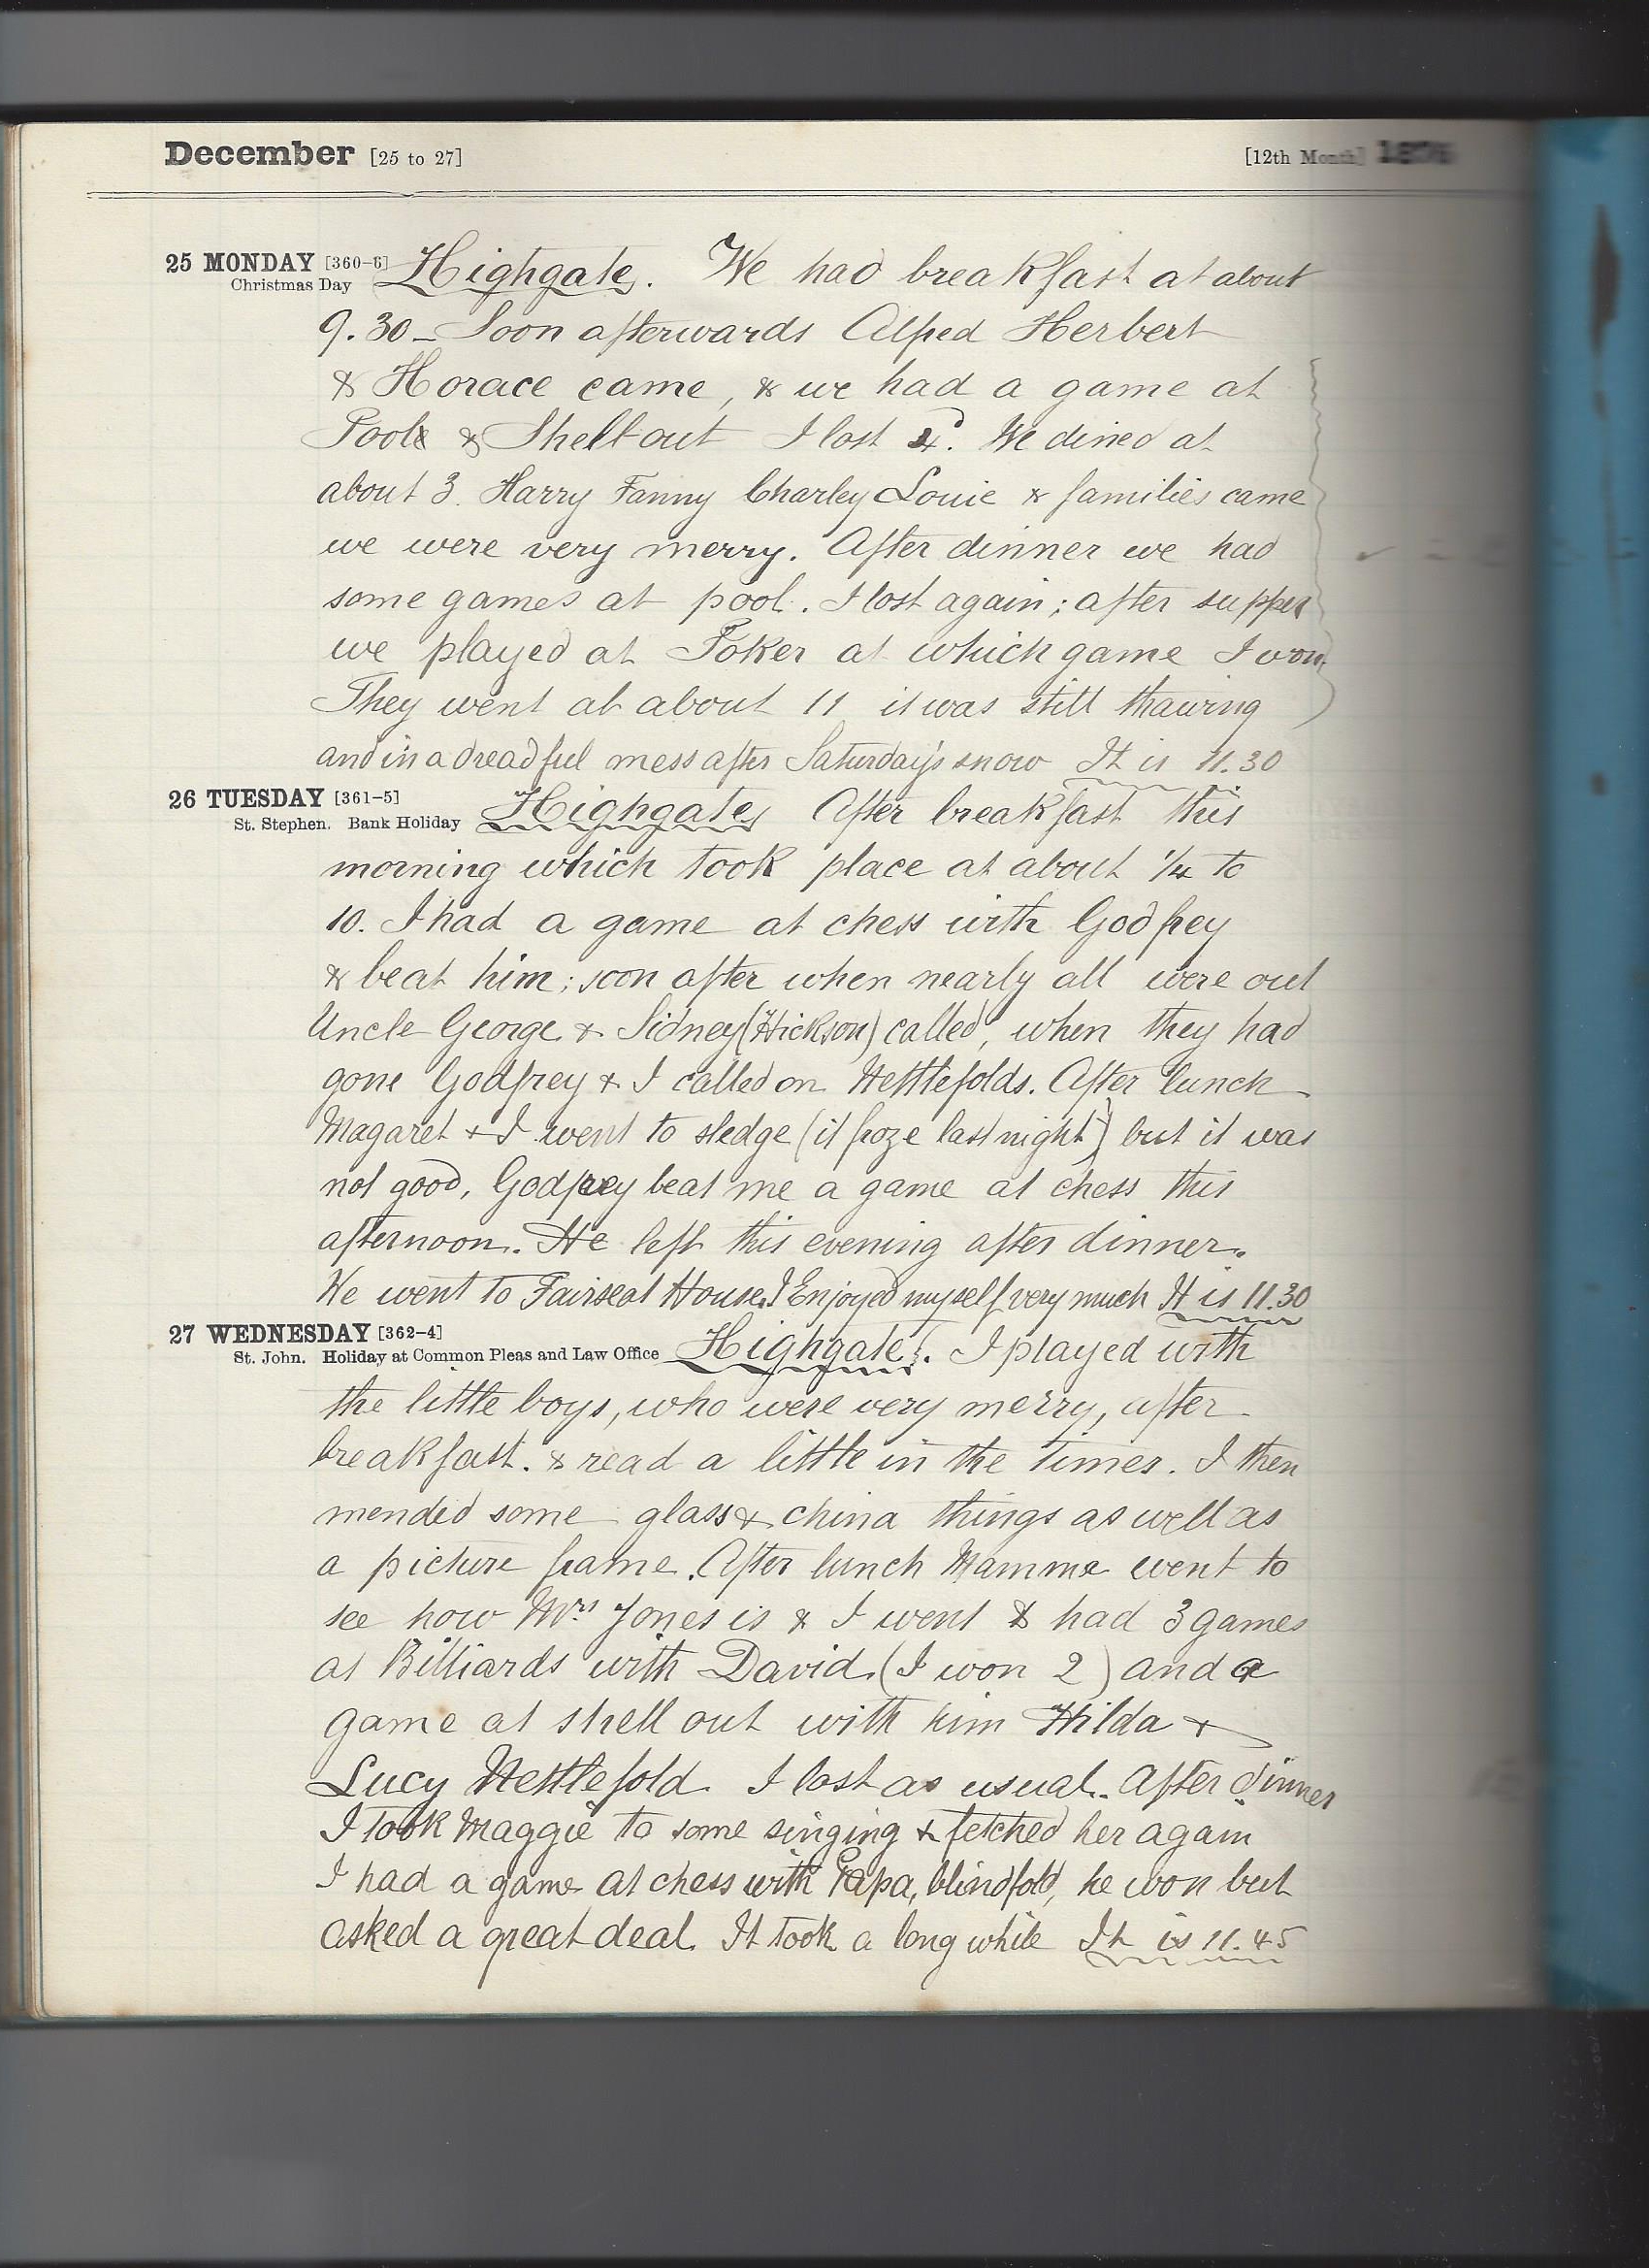 December [25 to 27] [12th Month] 1876
25 MONDAY [360-6] Highgate. We had breakfast at about
Christmas Day
9.30 _ Soon afterwards Alfred Herbert
& Horace came, & we had a game at
Pool & Shell out I lost 4d. We dined at
about 3. Harry Fanny Charley Louie & families came
we were very merry. After dinner we had
some games at pool. I lost again; after supper
we played at Poker at which game I won
They went at about 11 it was still thawing
and in a dreadful mess after Saturday's snow It is 11.30
26 TUESDAY [361-5] Highgate, After breakfast this
St. Stephen. Bank Holiday
morning which took place at about 1/4 to
10. I had a game at chess with Godfrey
& beat him; soon after when nearly all were out
Uncle George & Sidney (Hickson) called, when they had
gone Godfrey & I called on Nettlefolds. After lunch
Magaret & I went to sledge (it froze last night) but it was
not good, Godfrey beat me a game at chess this
afternoon. He left this evening after dinner.
We went to Fairseat House. I Enjoyed myself very much It is 11.30
27 WEDNESDAY [362-4] Highgate. I played with
St. John. Holiday at Common Pleas and Law Office
the little boys, who were very merry, after
breakfast. & read a little in the Times. I then
mended some glass & china things as well as
a picture frame. After lunch Mamma went to
see how Mrs Jones is & I went & had 3 games
at Billiards with David (I won 2) and a
game at shell out with him Hilda &
Lucy Nettlefold. I lost as usual. After dinner
I took Maggie to some singing & fetched her again
I had a game at chess with Papa, blindfold, he won but
asked a great deal. It took a long while It is 11.45